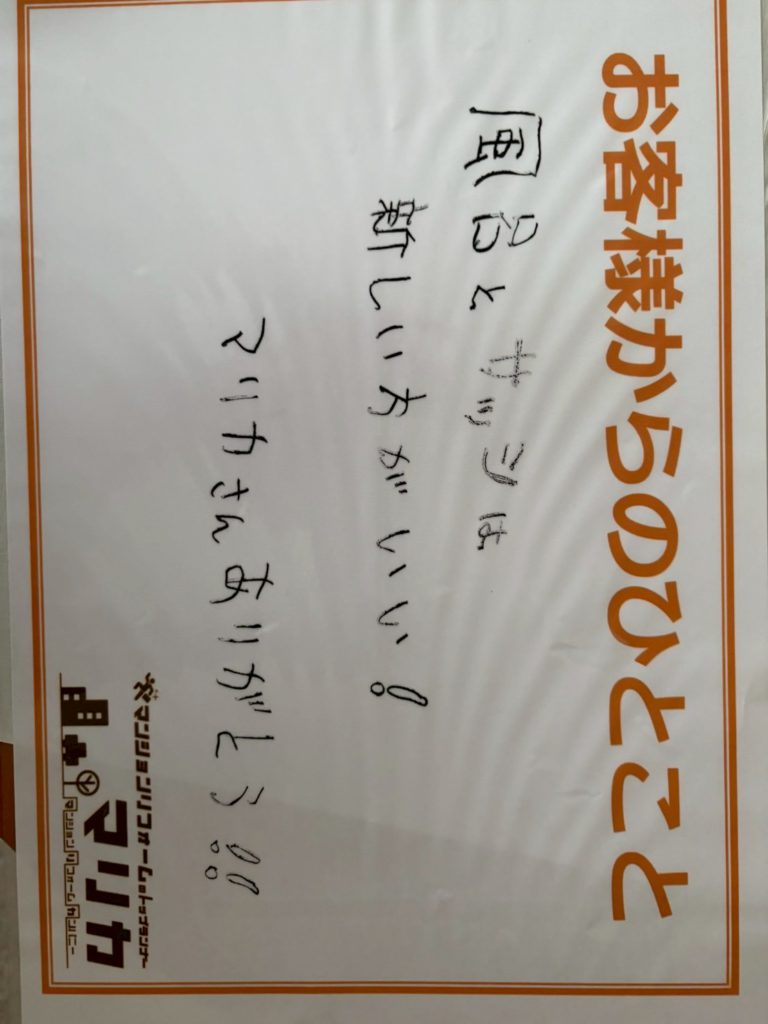 お客様からのひとこと
風呂とサッシは
新しい方がいい!
マリカさんありがとう!!
マンションリフォームのトップランナー
マリカ
マンションリフォームカンパニー